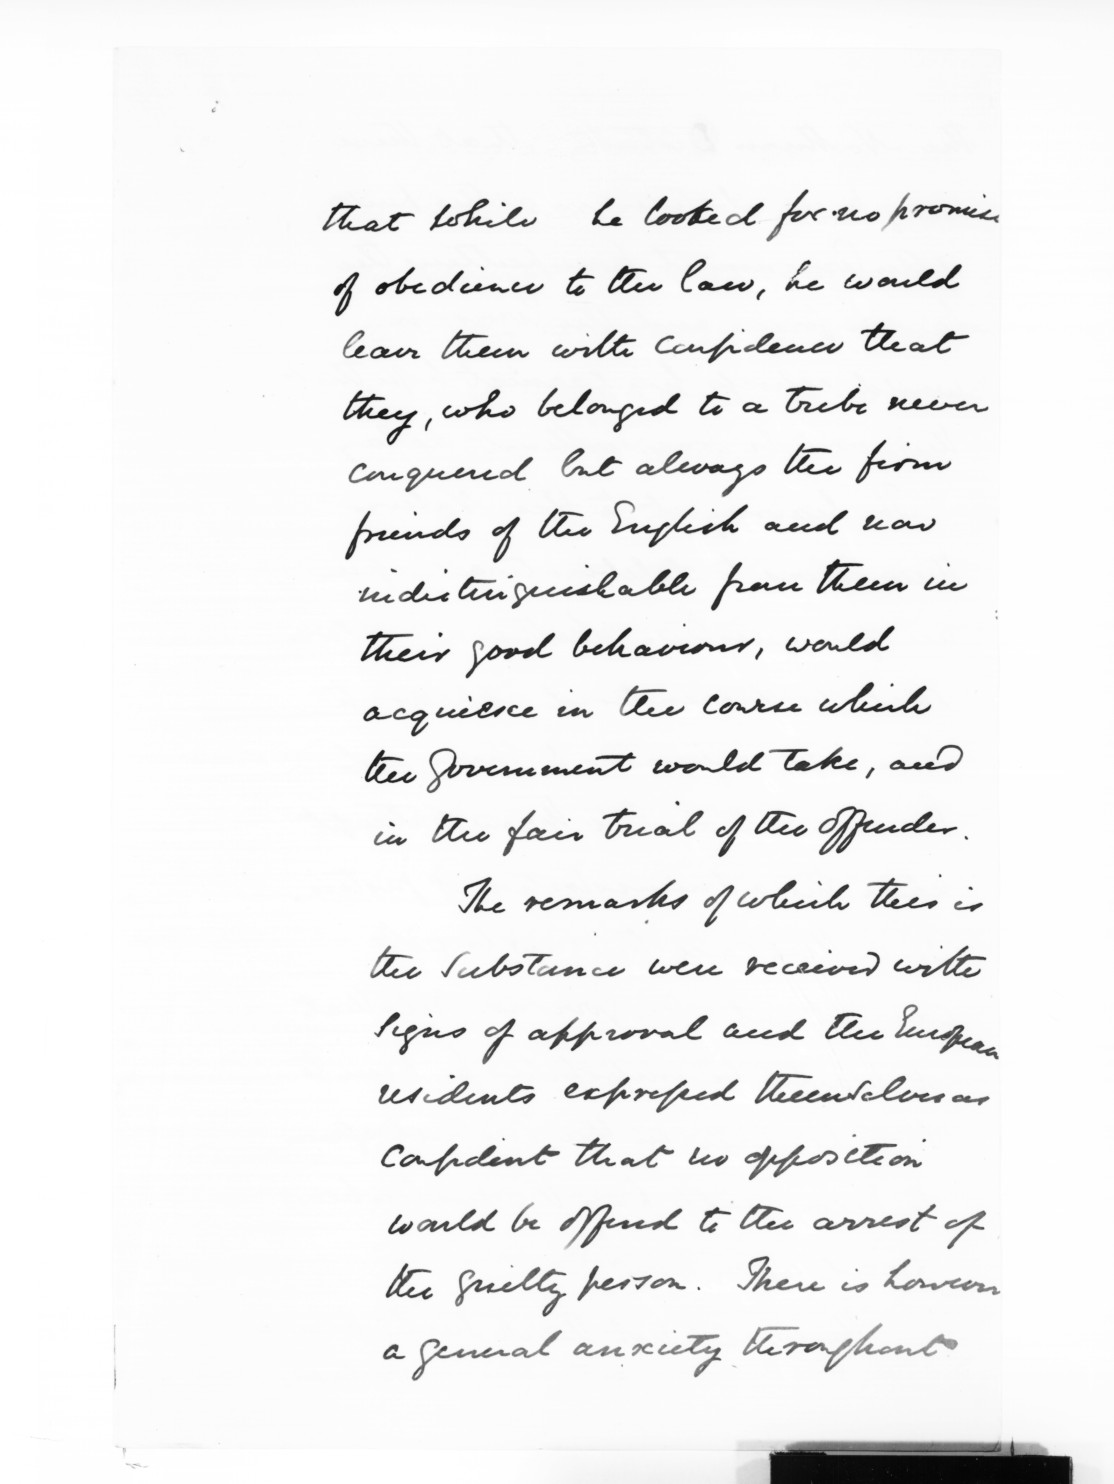 that while he looked for no promise
of obedience to the law, he would
leave them with confidence that
they, who belonged to a tribe never
conquered but always the firm
friends of the English and now
indistinguishable from them in
their good behaviour, would
acquiesce in the course which
the Government would take, and
in the fair trial of the offender.
The remarks of which this is
the substance were received with
signs of approval and the European
residents expressed themselves as
confident that no opposition
would be offered to the arrest of
the guilty person. There is however
a general anxiety throughout